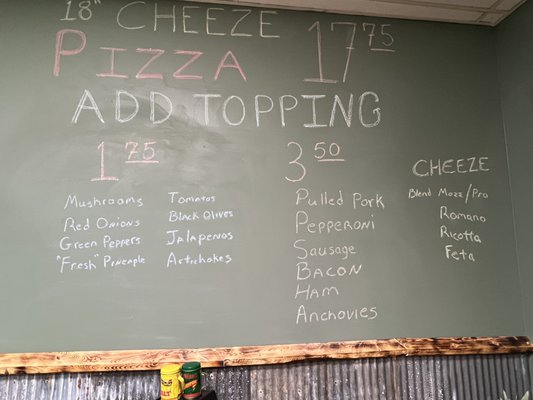 18" CHEEZE
PIZZA 17 75
ADD TOPPING
1 75
Mushrooms
Red Onions
Green Peppers
"Fresh" Pineapple
Tomatos
Black Olives
Jalapenos
Artichokes
3 50
Pulled Pork
Pepperoni
Sausage
BACON
HAM
Anchovies
CHEEZE
Blend Mozz/Pro
Romano
Ricotta
Feta